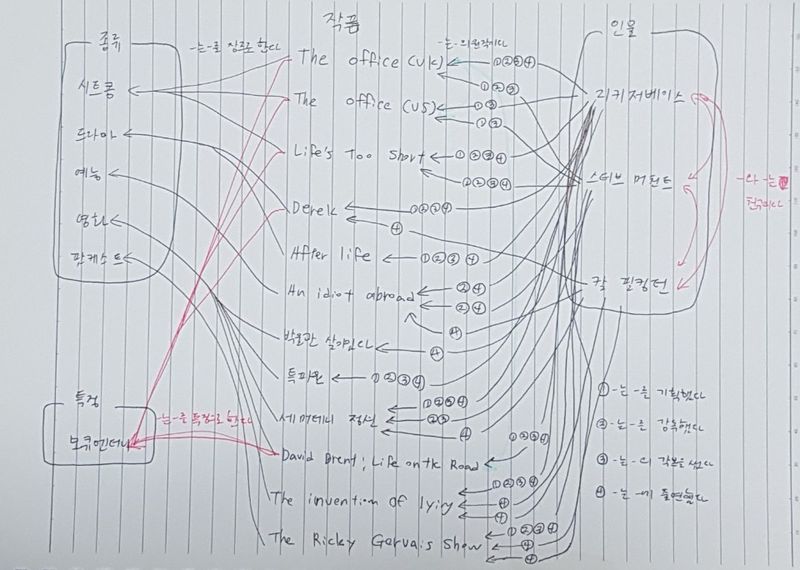 작품
종류
인물
-는 -를 장르로 한다
-는 -의 원작이다
시트콤
드라마
예능
영화
팟캐스트
The office (UK) ①②③④
①②③
The office (US) ①③
①③
Life's Too Short ①②③④
①②③④
Derek ①②③④
④
After life ①②③④
An idiot abroad ②④
②④
④
박물관 살아있다 ④
특파원 ①②③④
세머테리 정션 ①②③④
②③
④
David Brent: Life on the Road ①②③④
The invention of lying ①②③④
④
④
The Ricky Gervais Show ①②③④
④
④
리키 저베이스
스티브 머천트
칼 필킹턴
-와 -는
친구이다
특징
모큐멘터리
-는 -를 특징으로 한다
① -는 -를 기획했다
② -는 -를 감독했다
③ -는 -의 각본을 썼다
④ -는 -에 출연했다